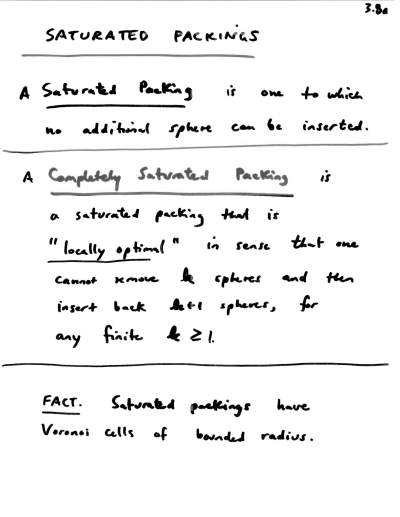 3.8a
SATURATED PACKINGS
A Saturated Packing is one to which
no additional sphere can be inserted.
A Completely Saturated Packing is
a saturated packing that is
"locally optimal" in sense that one
cannot remove k spheres and then
insert back k+1 spheres, for
any finite k ≥ 1.
FACT. Saturated packings have
Voronoi cells of bounded radius.